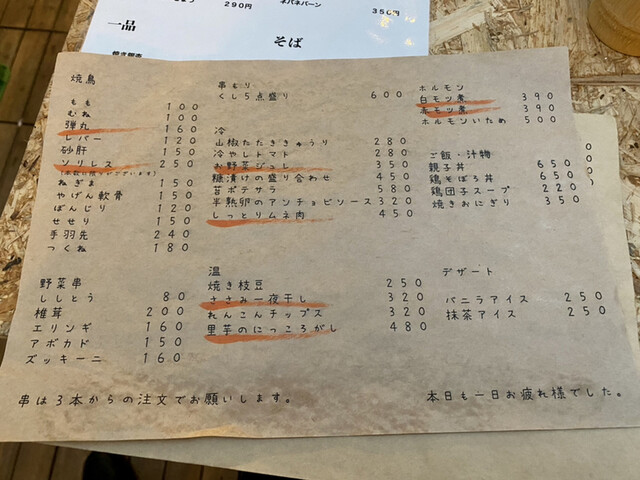 290円
ネバネバーン
350円
一品
そば
焼鳥
もも 100
むね 100
弾丸 160
レバー 120
砂肝 150
ソリレス 250
ねぎま 150
やげん軟骨 150
ぼんじり 120
せせり 150
手羽先 240
つくね 180
野菜串
ししとう 80
椎茸 200
エリンギ 160
アボカド 150
ズッキーニ 160
串もり
くし5点盛り 600
冷
山椒たたききゅうり 280
冷やしトマト 280
お野菜ジュレ 350
糠漬けの盛り合わせ 450
苔ポテサラ 580
半熟卵のアンチョビソース 320
しっとりムネ肉 450
温
焼き枝豆 250
ささみ一夜干し 320
れんこんチップス 320
里芋のにっころがし 480
ホルモン
白モツ煮 390
赤モツ煮 390
ホルモンいため 500
ご飯・汁物
親子丼 650
鶏そぼろ丼 650
鶏団子スープ 220
焼きおにぎり 350
デザート
バニラアイス 250
抹茶アイス 250
串は3本からの注文でお願いします。
本日も一日お疲れ様でした。